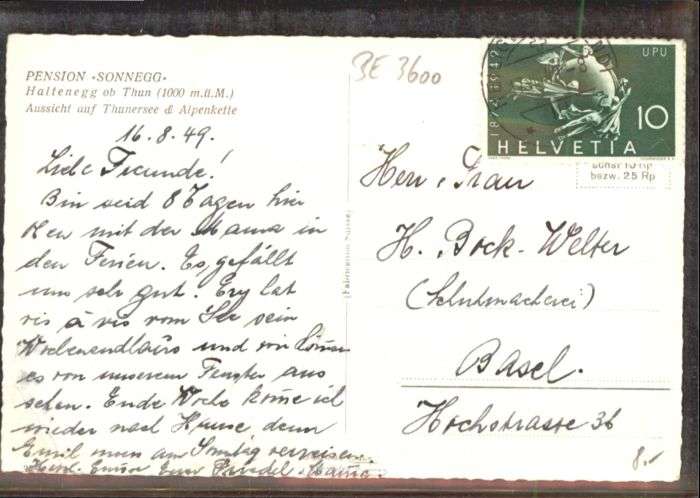 PENSION «SONNEGG»
Haltenegg ob Thun (1000 m.ü.M.)
Aussicht auf Thunersee & Alpenkette
16.8.49.
Liebe Freunde!
Bin seid 8 Tagen hier
oben mit der Mama in
den Ferien. Es gefällt
uns sehr gut. Ery hat
vis à vis vom See sein
Wochenendhaus und wir können
es von unserem Fenster aus
sehen. Ende Woche kome ich
wieder nach Hause denn
Emil muss am Sontag verreisen.
Herzl. Grüsse Euer Friedel + Mama.
BE 3600
1874 1949
UPU
10
HELVETIA
sonst 10 Rp
bezw. 25 Rp
Herr u. Frau
H. Bock-Welter
(Schuhmacherei)
Basel.
Hochstrasse 36
8.-